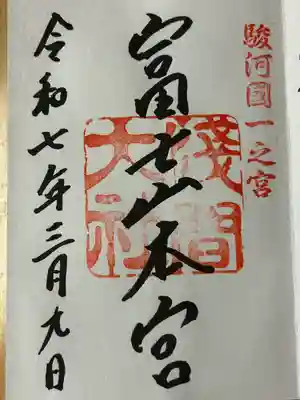 駿河國一之宮
富士山本宮
淺間大社
令和七年三月九日